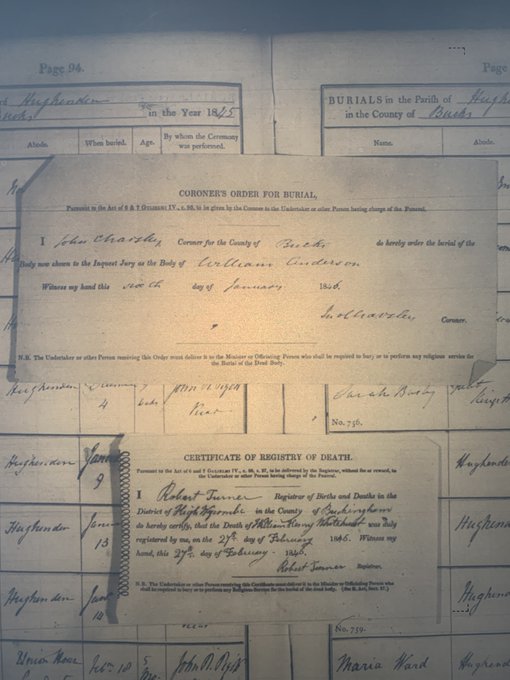 Page 94.
Page
Hughenden
in the Year 1845
BURIALS in the Parish of
in the County of Bucks
Abode.
When buried.
Age.
By whom the Ceremony
was performed.
Name.
Abode.
CORONER'S ORDER FOR BURIAL,
Pursuant to the Act of 6 & 7 GULIELMI IV., c. 86, to be given by the Coroner to the Undertaker or other Person having charge of the Funeral.
I John Charsley Coroner for the County of Bucks do hereby order the burial of the
Body now shown to the Inquest Jury as the Body of William Anderson
Witness my hand this sixth day of January 1846.
Jno Charsley Coroner.
N.B. The Undertaker or other Person receiving this Order must deliver it to the Minister or Officiating Person who shall be required to bury or to perform any religious service for
the Burial of the Dead Body.
Hughenden
4
Sarah
No. 756.
CERTIFICATE OF REGISTRY OF DEATH.
Pursuant to the Act of 6 and 7 GULIELMI IV., c. 86, s. 27, to be delivered by the Registrar, without fee or reward, to
the Undertaker or other Person having charge of the Funeral.
I Robert Turner Registrar of Births and Deaths in the
District of High Wycombe in the County of Buckingham
do hereby certify, that the Death of William Henry Whitehurst was duly
registered by me, on the 27th day of February 1846. Witness my
hand, this 27th day of February. 1846.
Robert Turner Registrar.
N.B. The Undertaker or other Person receiving this Certificate must deliver it to the Minister or Officiating Person who
shall be required to bury or to perform any Religious Service for the burial of the dead body. (See 6. Act, Sect. 27.)
Hughenden
9
Hughenden
13
Hughenden
14
No. 759.
Feby 18
5
Mo.
Maria Ward